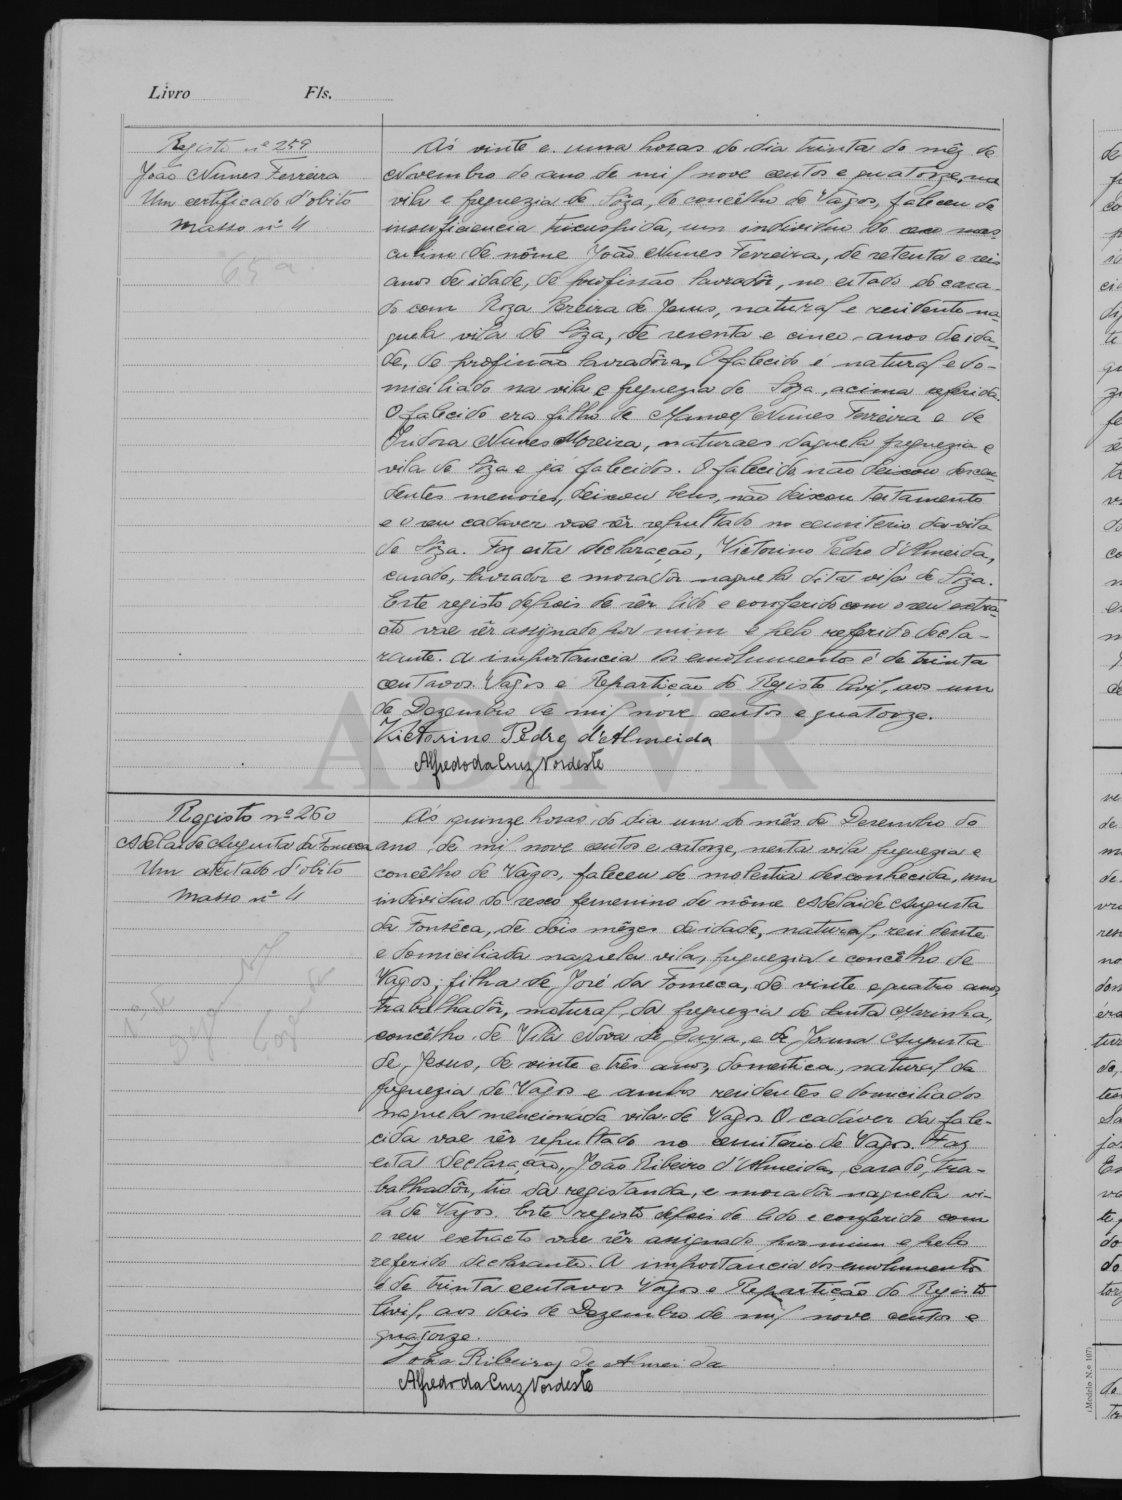 Livro Fls.
Registo nº 259
João Nunes Ferreira
Um certificado d'obito
Masso nº 4
65 a.
Ás vinte e uma horas do dia trinta do mêz de
Novembro do ano de mil nove centos e quatorze, na
vila e freguezia de Sôza, do concêlho de Vagos, faleceu de
insuficiencia tricuspida, um individuo do sexo mas-
culino de nôme João Nunes Ferreira, de setenta e seis
anos de idade, de profissão lavradôr, no estado de casa-
do com Roza Pereira de Jesus, natural e residente na-
quela vila de Sôza, de sesenta e cinco anos de ida-
de, de profissão lavradôra. O falecido é natural e do-
miciliado na vila e freguezia de Soza, acima referida.
O falecido era filho de Manoel Nunes Ferreira e de
Izidora Nunes Moreira, naturaes daquela freguezia e
vila de Sôza e já falecidos. O falecido não deixou descen-
dentes menores, deixou bens, não deixou testamento
e o seu cadaver vae sêr sepultado no cemiterio da vila
de Sôza. Faz esta declaração, Victorino Pedro d'Almeida,
casado, lavrador e moradôr naquela dita vila de Sôza.
Este registo depois de sêr lido e conferido com o seu extra-
cto vae sêr assignado por mim e pelo referido decla-
rante. A importancia dos emolumentos é de trinta
centavos. Vagos e Repartição do Registo Civil, aos um
de Dezembro de mil nove centos e quatorze.
Victorino Pedro d'Almeida
Alfredo da Cruz Nordeste
ADAVR
Registo nº 260
Adelaide Augusta da Fonseca
Um atestado d'obito
Masso nº 4
Ás quinze horas do dia um do mês de Dezembro do
ano de mil nove centos e catorze, nesta vila freguezia e
concêlho de Vagos, faleceu de molestia desconhecida, um
individuo do sexo femenino de nôme Adelaide Augusta
da Fonsêca, de dois mêzes de idade, natural, residente
e domiciliada naquela vila, freguezia e concêlho de
Vagos, filha de José da Fonseca, de vinte e quatro anos,
trabalhadôr, natural da freguezia de Santa Marinha,
concêlho de Vila Nova de Gaya, e de Joana Augusta
de Jesus, de vinte e três anos, domestica, natural da
freguezia de Vagos e ambos residentes e domiciliados
naquela mencionada vila de Vagos. O cadáver da fale-
cida vae sêr sepultado no cemiterio de Vagos. Faz
esta declaração, João Ribeiro d'Almeida, casado, tra-
balhadôr, tio da registanda, e moradôr naquela vi-
la de Vagos. Este registo depois de lido e conferido com
o seu extracto vae sêr assignado por mim e pelo
referido declarante. A importancia dos emolumentos
é de trinta centavos Vagos e Repartição do Registo
Civil, aos dois de Dezembro de mil nove centos e
quatorze.
João Ribeiro de Almeida
Alfredo da Cruz Nordeste
(Modelo N.º 107)